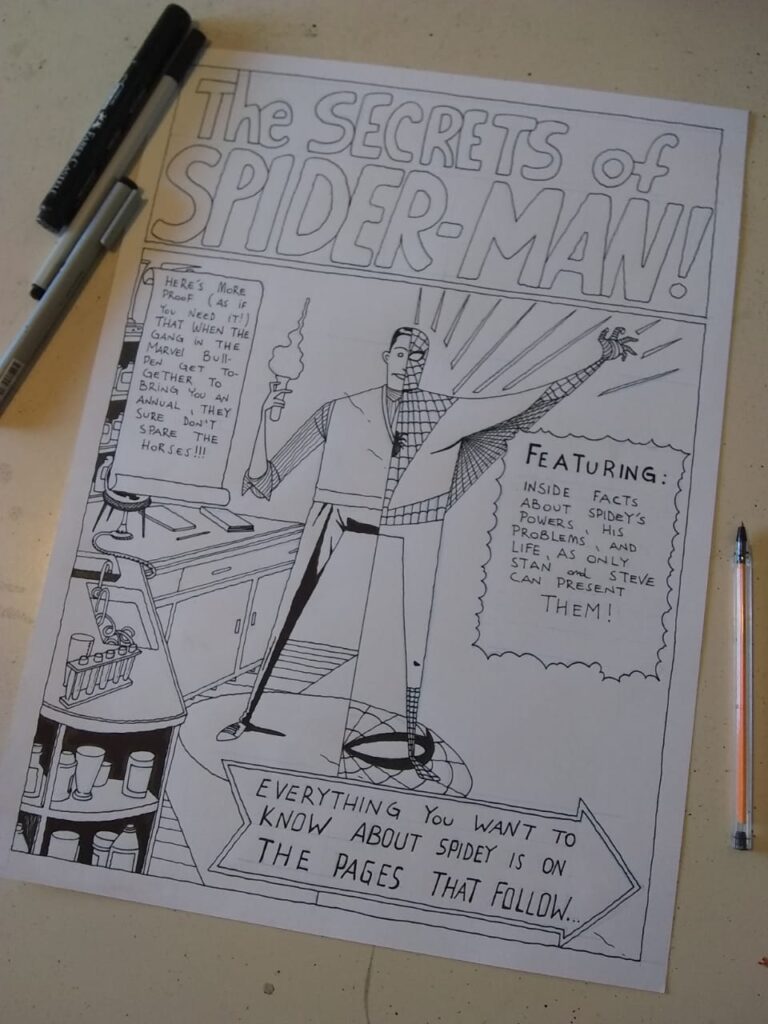 The SECRETS of
SPIDER-MAN!
HERE'S MORE
PROOF (AS IF
YOU NEED IT!)
THAT WHEN THE
GANG IN THE
MARVEL BULL-
PEN GET TO-
GETHER TO
BRING YOU AN
ANNUAL, THEY
SURE DON'T
SPARE THE
HORSES!!!
FEATURING:
INSIDE FACTS
ABOUT SPIDEY'S
POWERS, HIS
PROBLEMS, AND
LIFE, AS ONLY
STAN and STEVE
CAN PRESENT
THEM!
EVERYTHING YOU WANT TO
KNOW ABOUT SPIDEY IS ON
THE PAGES THAT FOLLOW...